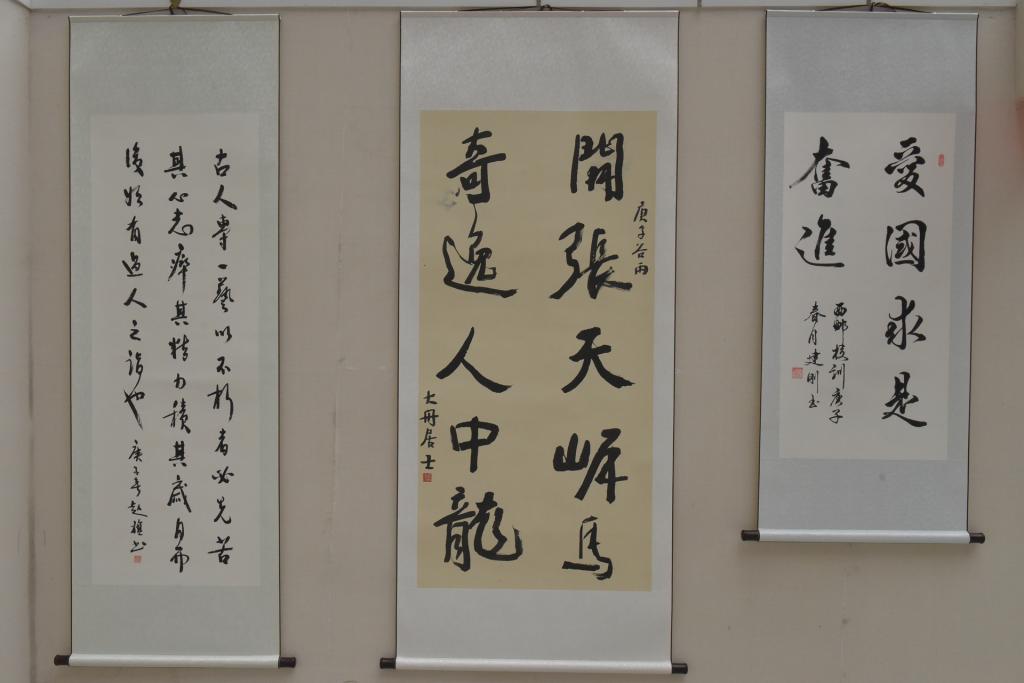 愛國求是
奮進
西邮校訓庚子
春月建刚书
開張天岸馬
庚子谷雨
奇逸人中龍
居士
古人專一藝以不朽者必先苦
其心志瘁其精力積其歲月而
後始有過人之詣也
庚子年趙